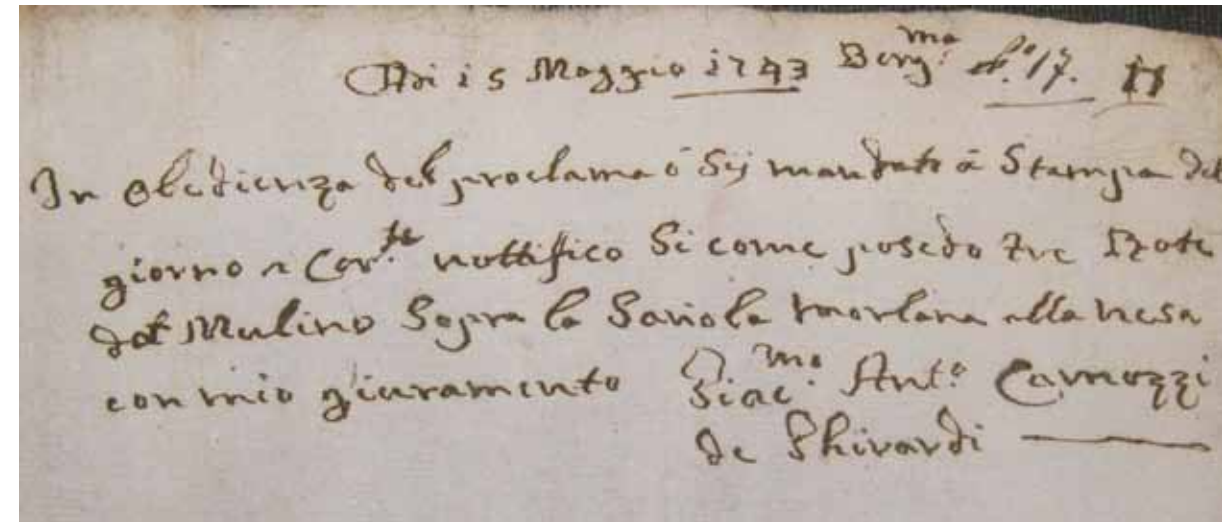 Adi 15 Maggio 1743 Bergmo No 17.
In Obedienza del proclama ó Sij mandato á Stampa del
giorno a Corte nottifico Si come posedo tre Rote
dal Mulino Sopra la Seriola morlana alla nesa
con mio giuramento Giacmo Anto Camozzi
de Ghirardi